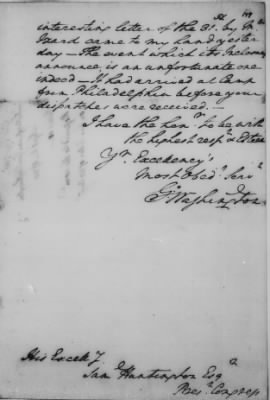 interesting letter of the 3d. by Mr.
Izard came to my hands yester
day — The event which its Inclosure
announce, is an unfortunate one
indeed — I had arrived at Camp
from Philadelphia before your
dispatches were received. —
I have the honr. to be with
the highest respt. & Esteem
Yr. Excellency's
Most Obed. Servt
Go. Washington
His Excelly.
Sam Huntington Esqr.
Prest. Congress